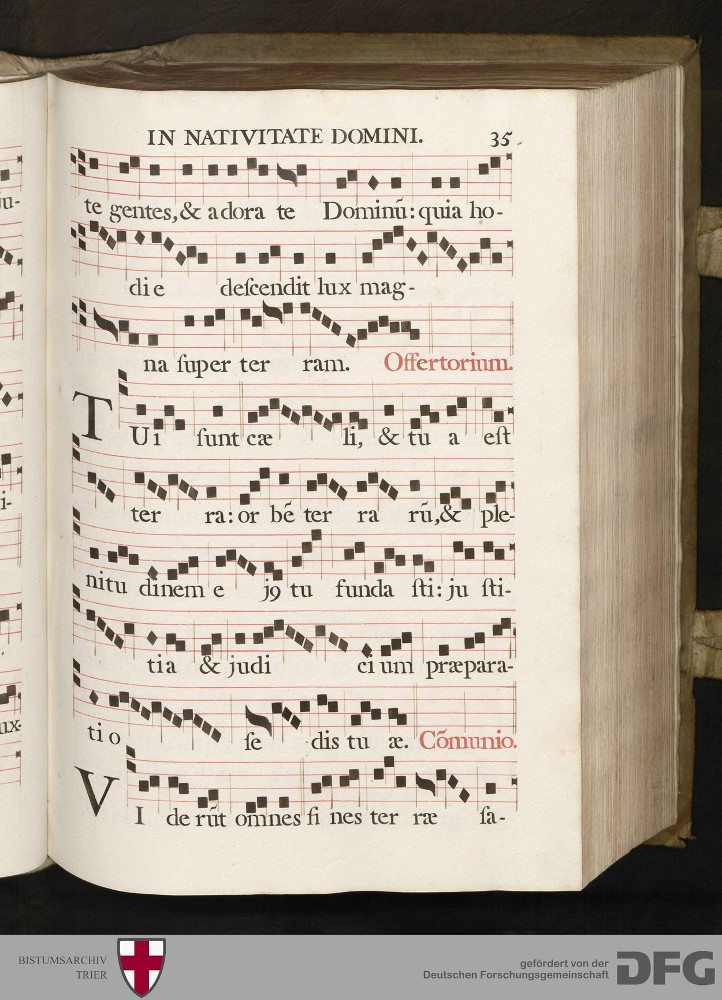 IN NATIVITATE DOMINI. 35
te gentes, & adora te Dominũ: quia ho-
die deſcendit lux mag-
na ſuper ter ram. Offertorium.
TUi ſunt cæ li, & tu a eſt
ter ra: or bẽ ter ra rũ, & ple-
nitu dinem e j9 tu funda ſti: ju ſti-
tia & judi ci um præpara-
ti o ſe dis tu æ. Cõmunio.
VI de rũt omnes fi nes ter ræ ſa-
ju-
i-
ux-
BISTUMSARCHIV
TRIER
gefördert von der
Deutschen Forschungsgemeinschaft
DFG